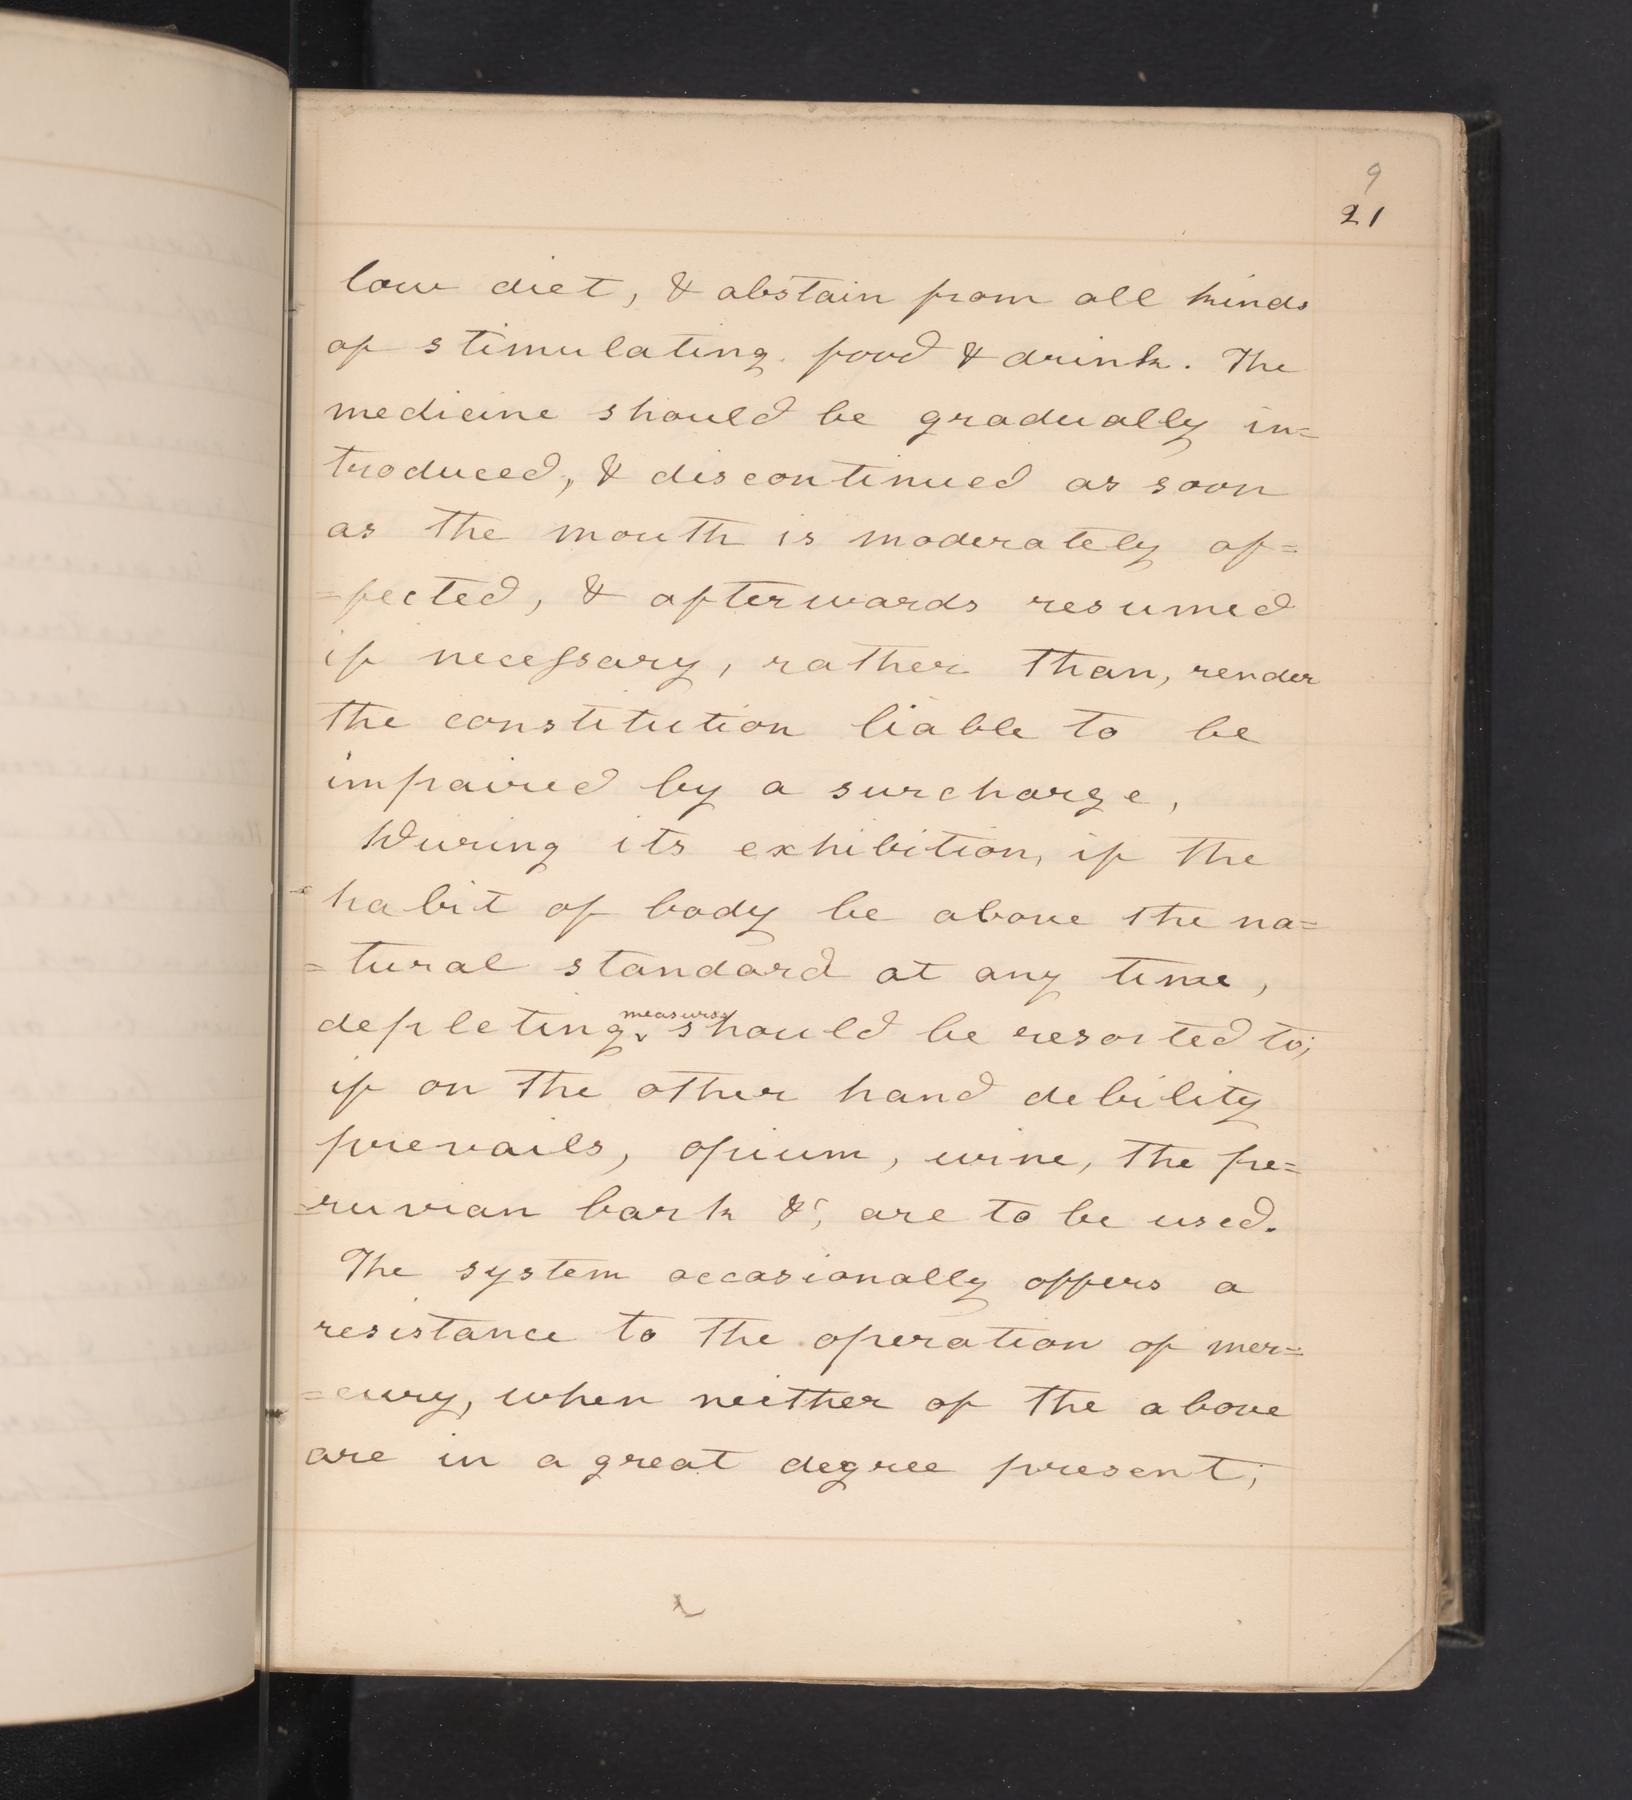 9
21
low diet, & abstain from all kinds
of stimulating food & drink. The
medicine should be gradually in=
troduced, & discontinued as soon
as the mouth is moderately af=
=fected, & afterwards resumed
if necessary, rather than, render
the constitution liable to be
impaired by a surcharge,
During its exhibition, if the
habit of body be above the na=
=tural standard at any time,
depleting measures should be resorted to;
if on the other hand debility
prevails, opium, wine, the pe=
=ruvian bark &c, are to be used.
The system occasionally offers a
resistance to the operation of mer=
=cury, when neither of the above
are in a great degree present;